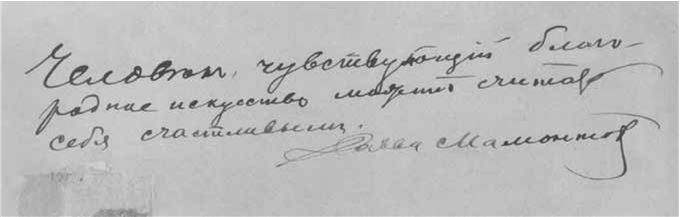 Человек, чувствующий благо-
родное искусство может считать
себя счастливым.
Савва Мамонтов